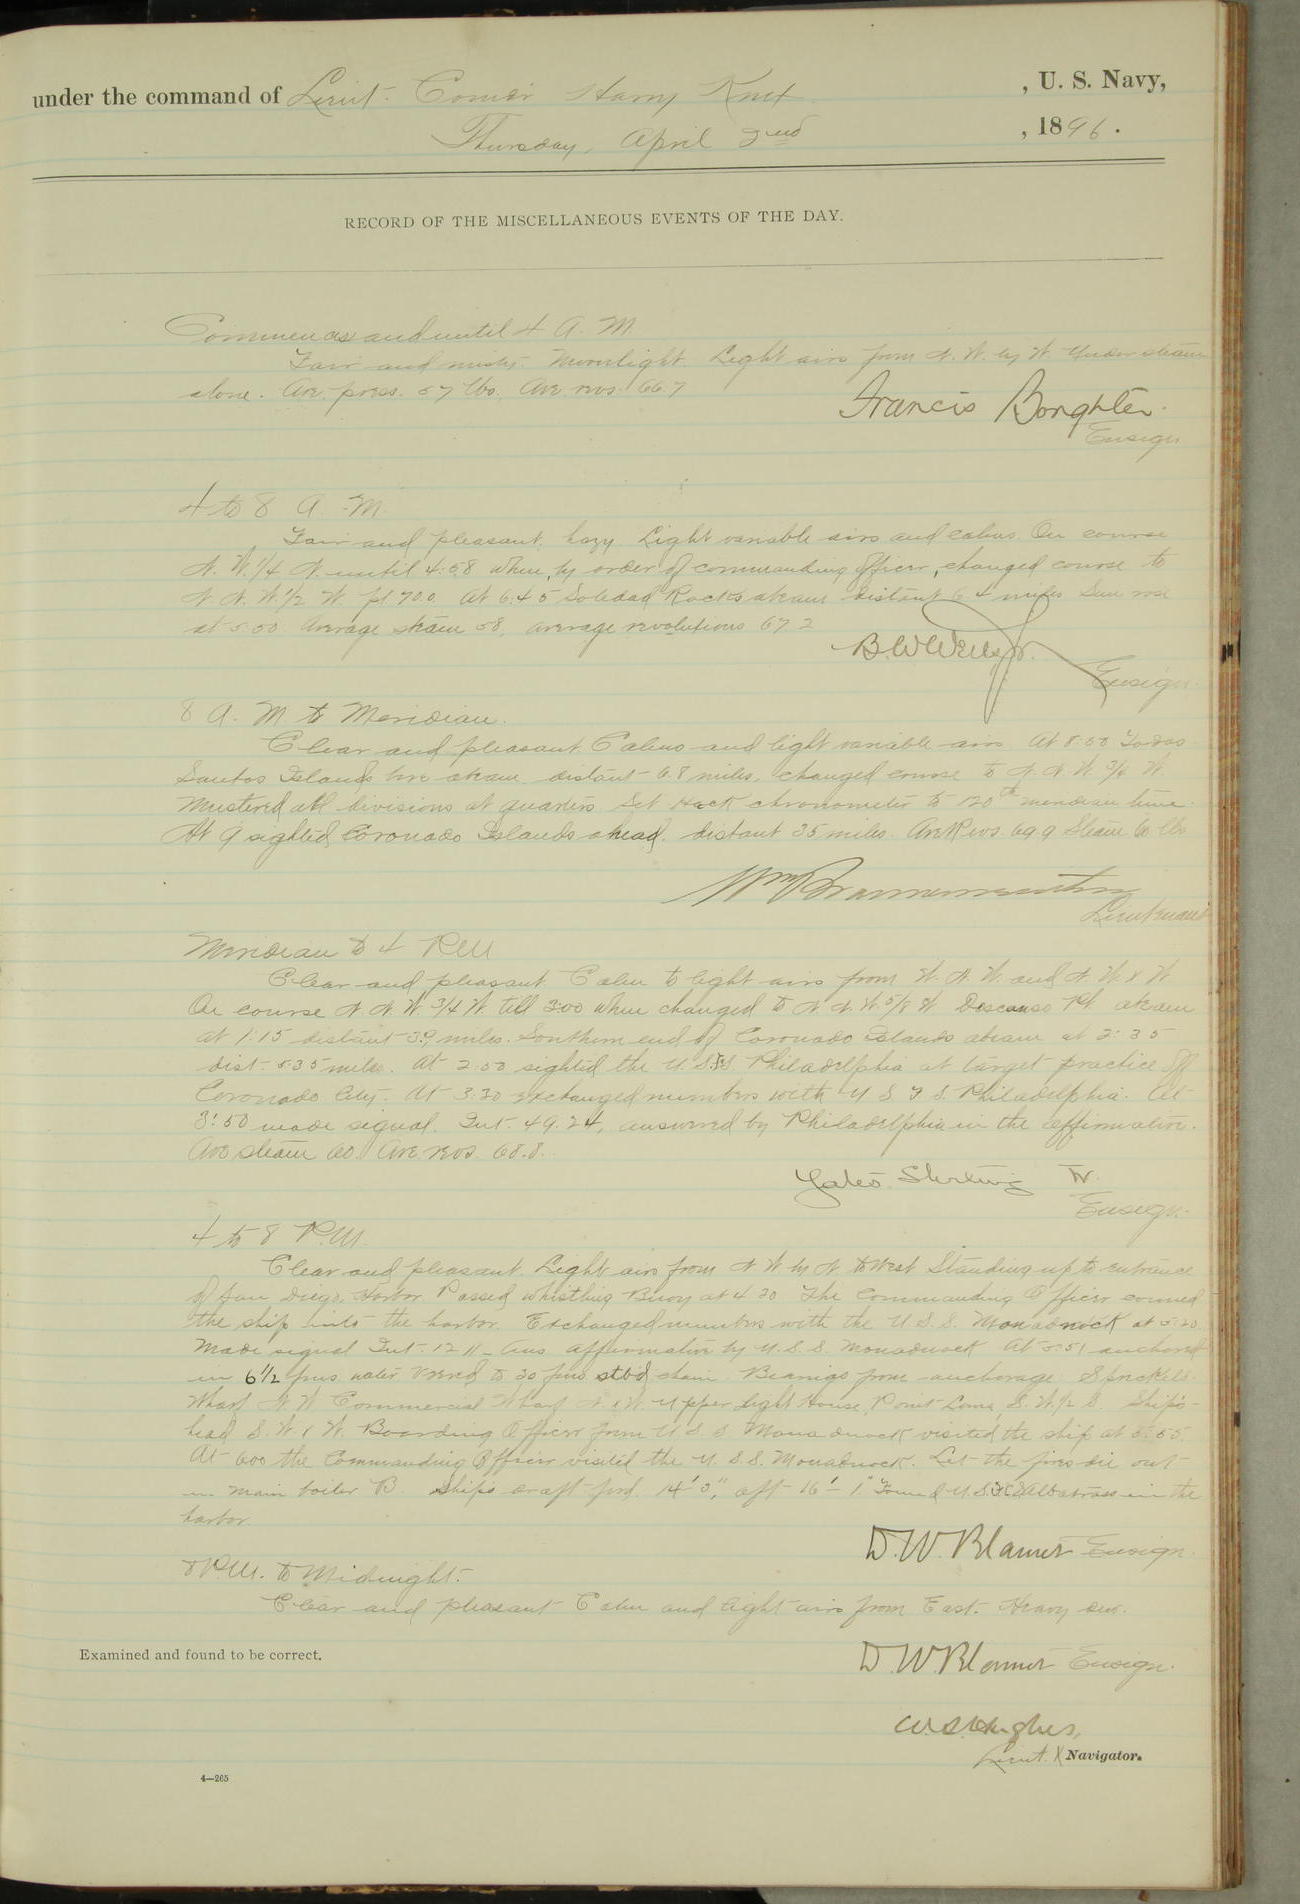 under the command of Lieut. Comdr Harry Knox , U. S. Navy,
Thursday, April 2nd , 1896.
RECORD OF THE MISCELLANEOUS EVENTS OF THE DAY.
Commences and until 4 A. M.
Fair and misty. Moonlight Light airs from N. W. by W. Under steam
alone. Ave. press. 57 lbs. Ave. revs. 66.7
Francis Boughter.
Ensign
4 to 8 A. M.
Fair and pleasant, hazy Light variable airs and calms. On course
N. W. 1/4 N. until 4:58 when, by order of commanding officer, changed course to
N. N. W. 1/2 W. At 6:45 Soledad Rocks abeam distant 6.4 miles Sun rose
at 5:50. Average steam 58, average revolutions 67.2
B. W. Wells Jr.
Ensign.
8 A. M to Meridian.
Clear and pleasant Calms and light variable airs At 8:00 Todos
Santos Islands bore abeam distant 6.8 miles, changed course to N. N. W. 3/4 W.
Mustered all divisions at quarters. Set Hack chronometer to 120th meridian time.
At 9 sighted Coronado Islands ahead. distant 35 miles. Ave Revs. 69.9 Steam 60 lbs
Lieutenant
Meridian to 4 P.M
Clear and pleasant. Calm to light airs from W. N. W. and N. W. x W
On course N. N. W. 3/4 W. till 3:00 when changed to N. N. W. 5/8 W Descanso Pt. abeam
at 1:15 distant 3.9 miles. Southern end of Coronado Islands abeam at 2:35
dist. 5.35 miles. At 2:50 sighted the U.S.F.S Philadelphia at target practice off
Coronado City. At 3:30 exchanged numbers with U S F S. Philadelphia. At
3:50 made signal. Int. 49.24, answered by Philadelphia in the affirmative.
Ave steam 60. Ave revs. 68.8.
Yates Stirling Jr.
Ensign.
4 to 8 P.M.
Clear and pleasant. Light airs from N W by N to West Standing up to entrance
of San Diego Harbor Passed whistling Buoy at 4 30 The Commanding Officer conned
the ship into the harbor. Exchanged numbers with the U. S. S. Monadnock at 5:20
Made signal Int. 1211 - Ans affirmative by U. S. S. Monadnock At 5:51 anchored
in 6 1/2 fms water veered to 30 fms stbd chain. Bearings from anchorage Spreckels
Wharf N. W Commercial Wharf N. x W. Upper Light House, Point Loma, S. W. 1/2 S. Ship's
head S. W. x W. Boarding Officer from U S. S Monadnock visited the ship at 5:55.
At 6:00 the Commanding Officer visited the U. S. S. Monadnock. Let the fires die out
in main boiler B. Ships draft ford. 14' 3", aft 16' - 1" Found U. S. F. C. S Albatross in the
harbor.
D. W. Blamer Ensign.
8 P.M. to Midnight.
Clear and pleasant Calm and light airs from East. Heavy dew.
Examined and found to be correct.
D. W. Blamer Ensign.
W. S. Hughes,
Lieut. X Navigator.
4—265